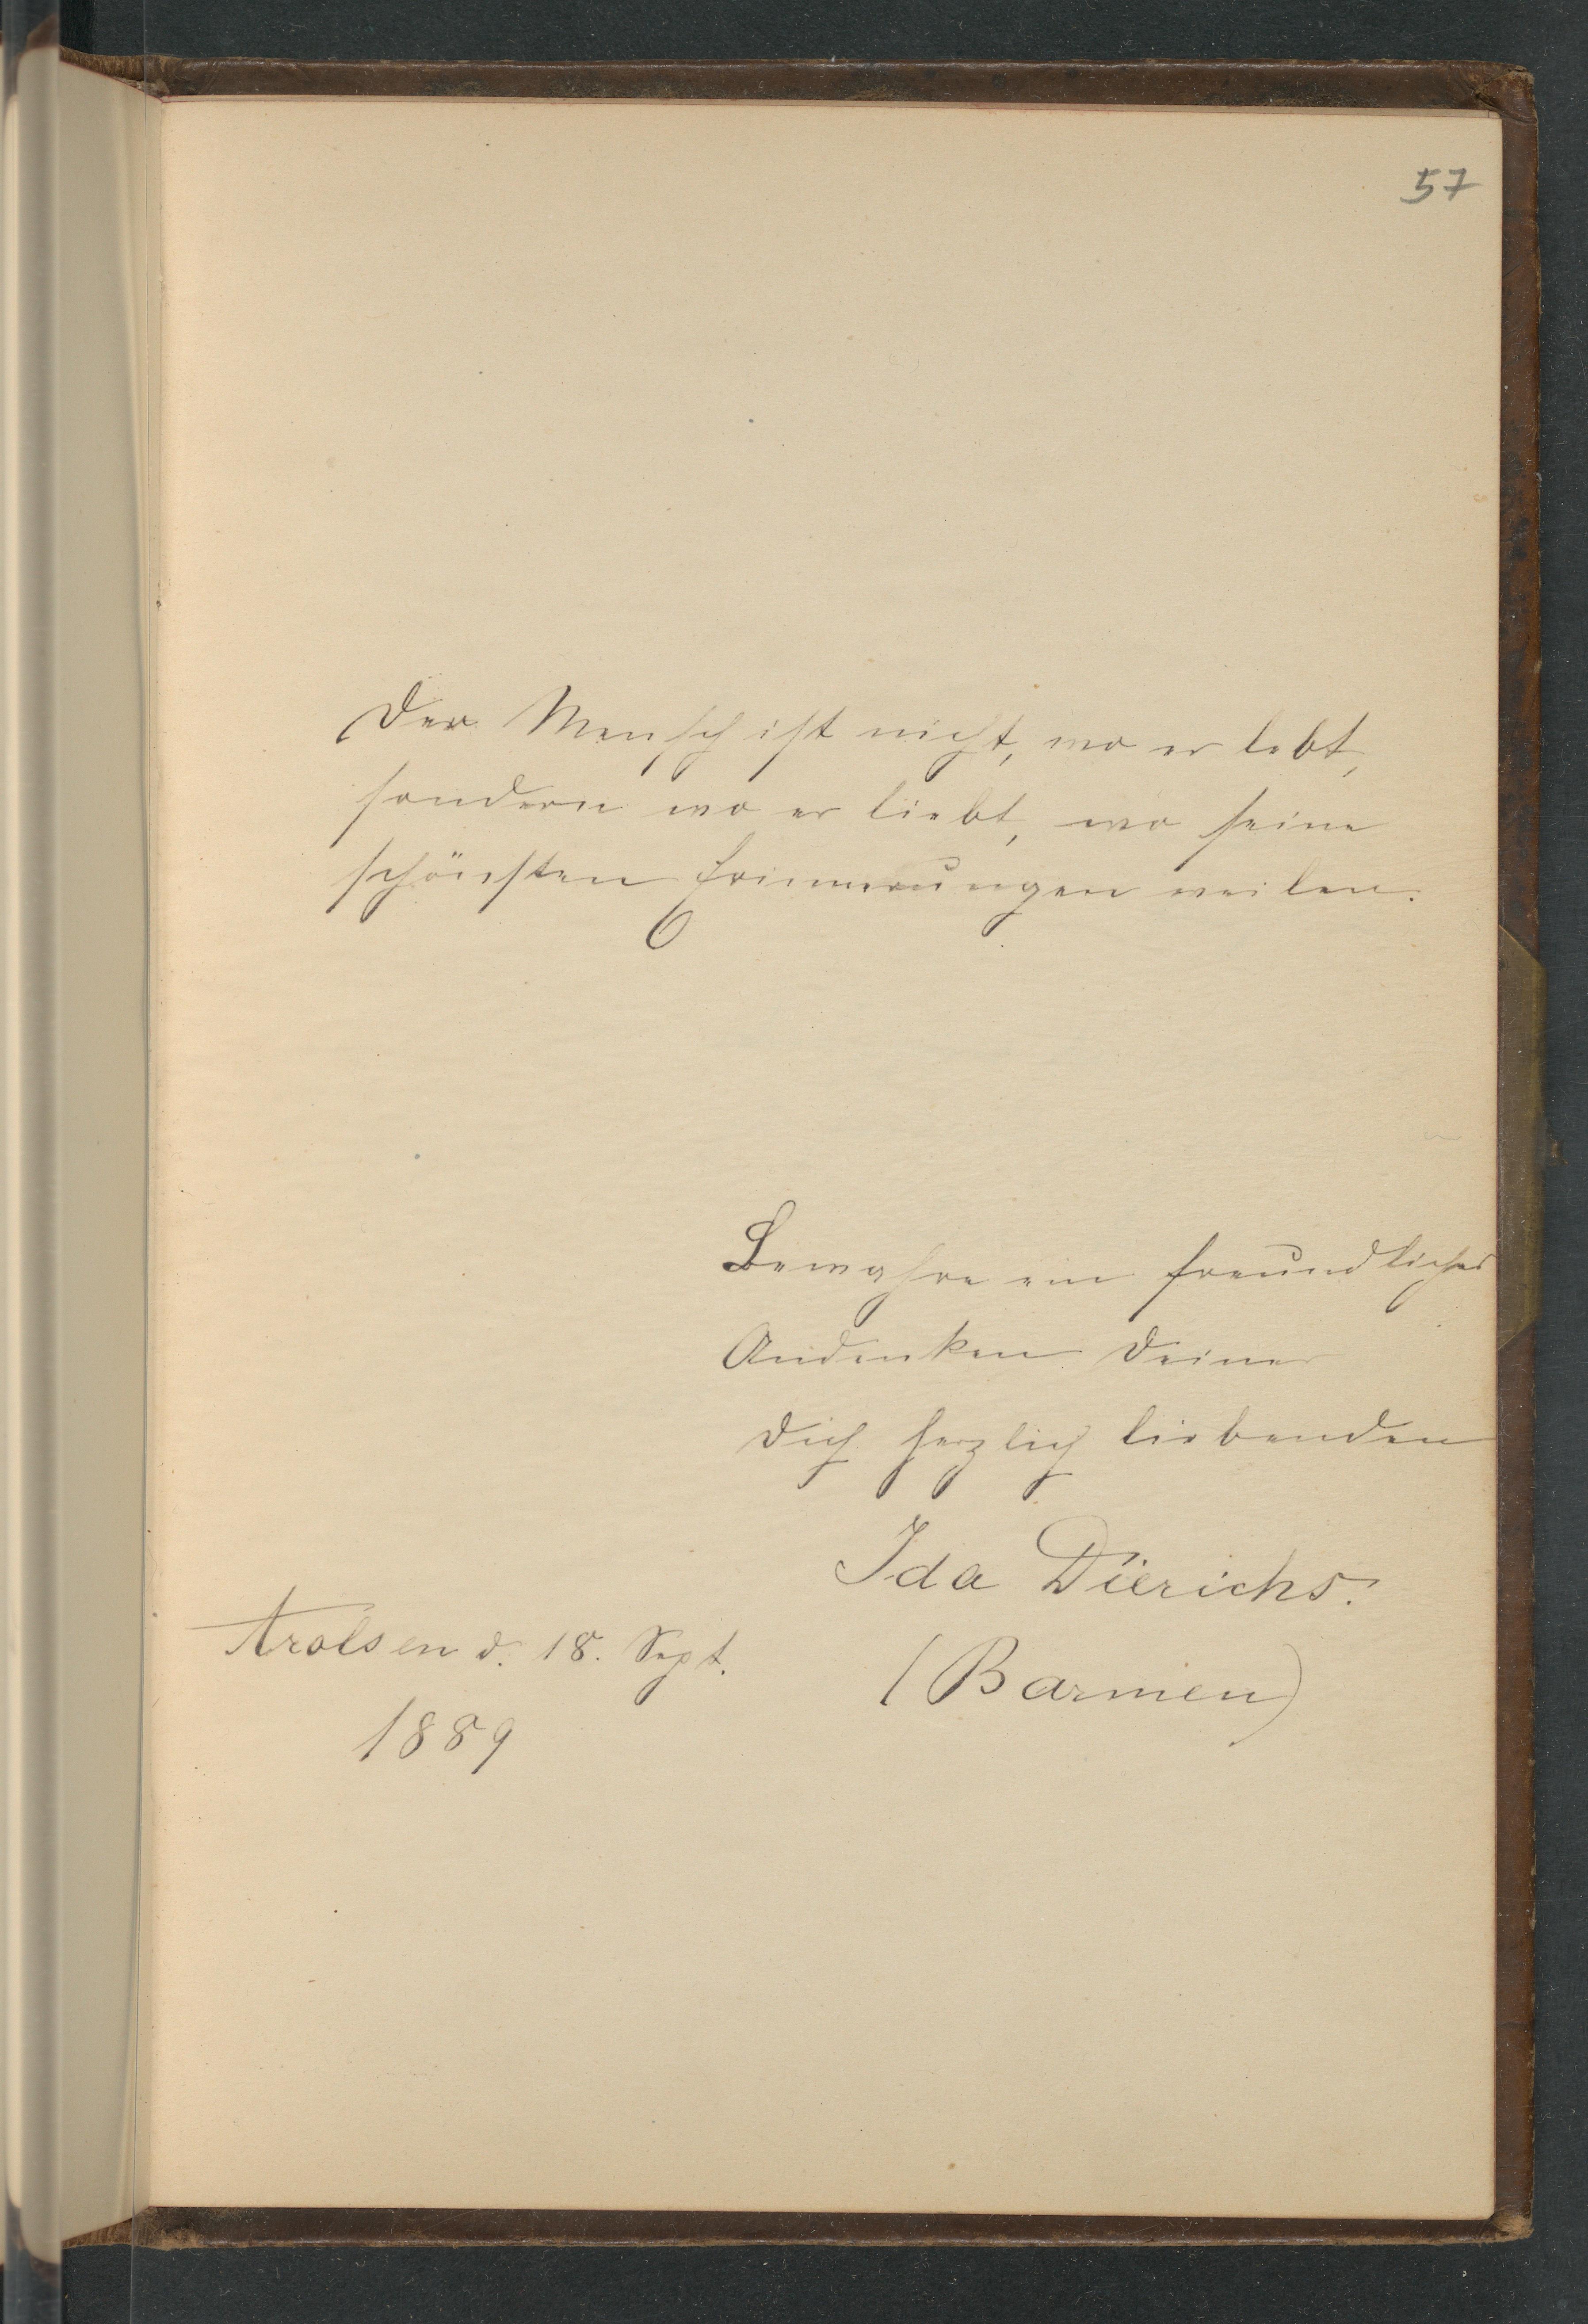 57
Der Mensch ist nicht, wo er lebt,
sondern wo er liebt, wo seine
schönsten Erinnerungen weilen.
Bewahre ein freundliches
Andenken Deiner
Dich herzlich liebenden
Ida Dierichs.
(Barmen)
Arolsen d. 18. Sept.
1889